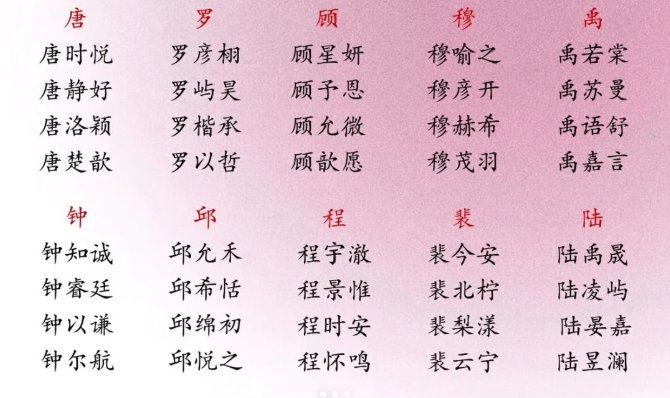 唐 罗 顾 穆 禹
唐时悦 罗彦栩 顾星妍 穆喻之 禹若棠
唐静好 罗屿昊 顾予恩 穆彦开 禹苏曼
唐洛颖 罗楷承 顾允微 穆赫希 禹语舒
唐楚歆 罗以哲 顾歆愿 穆茂羽 禹嘉言
钟 邱 程 裴 陆
钟知诚 邱允禾 程宇澈 裴今安 陆禹晟
钟睿廷 邱希恬 程景惟 裴北柠 陆凌屿
钟以谦 邱绵初 程时安 裴梨漾 陆晏嘉
钟尔航 邱悦之 程怀鸣 裴云宁 陆昱澜